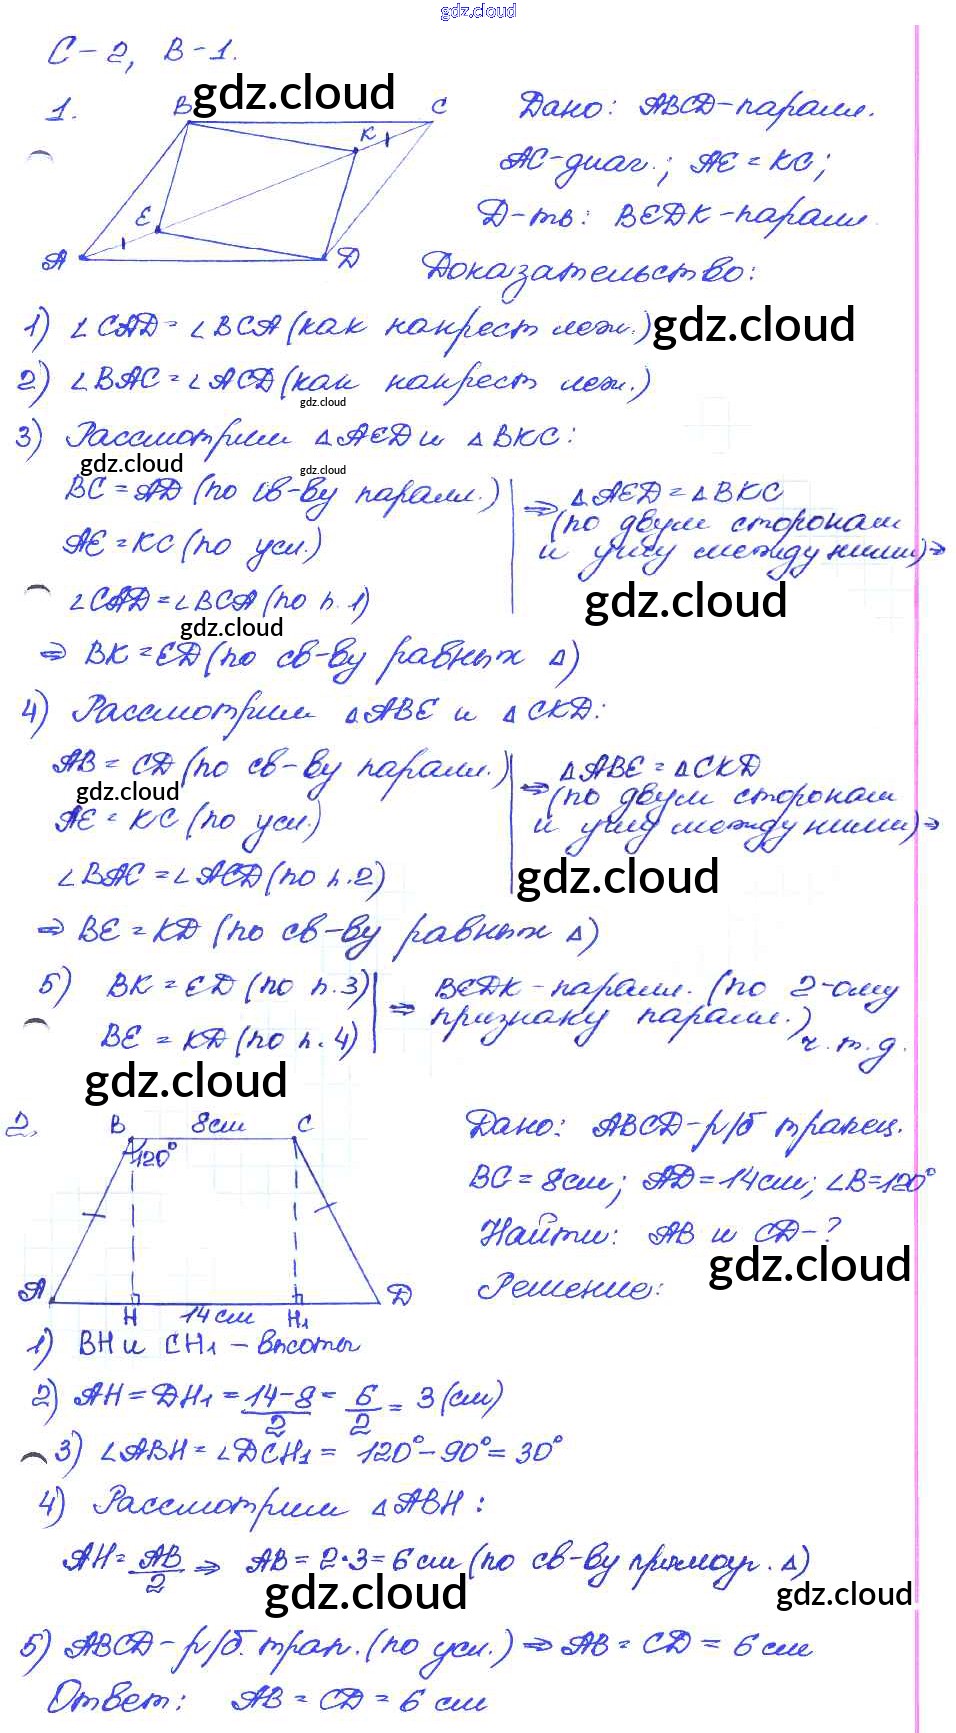 gdz.cloud
С-2, В-1.
gdz.cloud
1.
B C K E A D
Дано: ABCD-паралл.
AC-диаг.; AE = KC;
Д-ть: BEDK-паралл.
Доказательство:
1) ∠CAD = ∠BCA (как накрест леж.)
gdz.cloud
2) ∠BAC = ∠ACD (как накрест леж.)
gdz.cloud
3) Рассмотрим △AED и △BKC:
gdz.cloud
gdz.cloud
BC = AD (по св-ву паралл.)
AE = KC (по усл.)
∠CAD = ∠BCA (по п.1)
⇒ △AED = △BKC
(по двум сторонам
и углу между ними) ⇒
gdz.cloud
gdz.cloud
⇒ BK = ED (по св-ву равных △)
4) Рассмотрим △ABE и △CKD:
AB = CD (по св-ву паралл.)
gdz.cloud
AE = KC (по усл.)
∠BAC = ∠ACD (по п.2)
⇒ △ABE = △CKD
(по двум сторонам
и углу между ними) ⇒
gdz.cloud
⇒ BE = KD (по св-ву равных △)
5) BK = ED (по п.3)
BE = KD (по п.4)
⇒ BEDK - паралл. (по 2-ому
признаку паралл.)
ч.т.д.
gdz.cloud
2.
B 8см C
120°
A H 14см H₁ D
Дано: ABCD-р/б трапец.
BC = 8см; AD = 14см; ∠B = 120°
Найти: AB и CD-?
gdz.cloud
Решение:
1) BH и CH₁ - высоты
2) AH = DH₁ = 14-8/2 = 6/2 = 3 (см)
3) ∠ABH = ∠DCH₁ = 120° - 90° = 30°
4) Рассмотрим △ABH:
AH = AB/2 ⇒ AB = 2·3 = 6 см (по св-ву прямоуг. △)
gdz.cloud
gdz.cloud
5) ABCD - р/б. трап. (по усл.) ⇒ AB = CD = 6 см
Ответ: AB = CD = 6 см